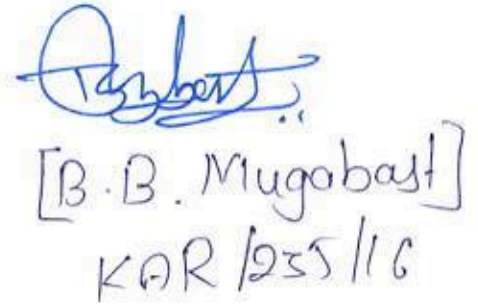 [B.B. Mugabast]
KAR/235/16